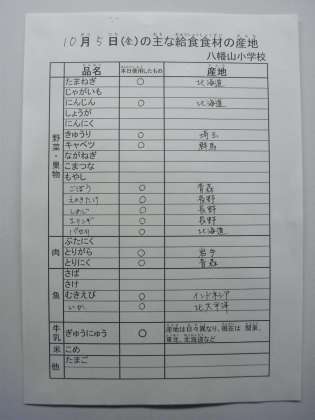 10月5日(金)の主な給食食材の産地
八幡山小学校
品名 本日使用したもの 産地
野菜・果物
たまねぎ ○ 北海道
じゃがいも
にんじん ○ 北海道
しょうが
にんにく
きゅうり ○ 埼玉
キャベツ ○ 群馬
ながねぎ
こまつな
もやし
ごぼう ○ 青森
えのきたけ ○ 長野
しめじ ○ 長野
エリンギ ○ 長野
パセリ ○ 北海道
肉
ぶたにく
とりがら ○ 岩手
とりにく ○ 青森
魚
さば
さけ
むきえび ○ インドネシア
いか ○ 北太平洋
牛乳 ぎゅうにゅう ○ 産地は日々異なり、現在は 関東、
東北、北海道など
米 こめ
他 たまご